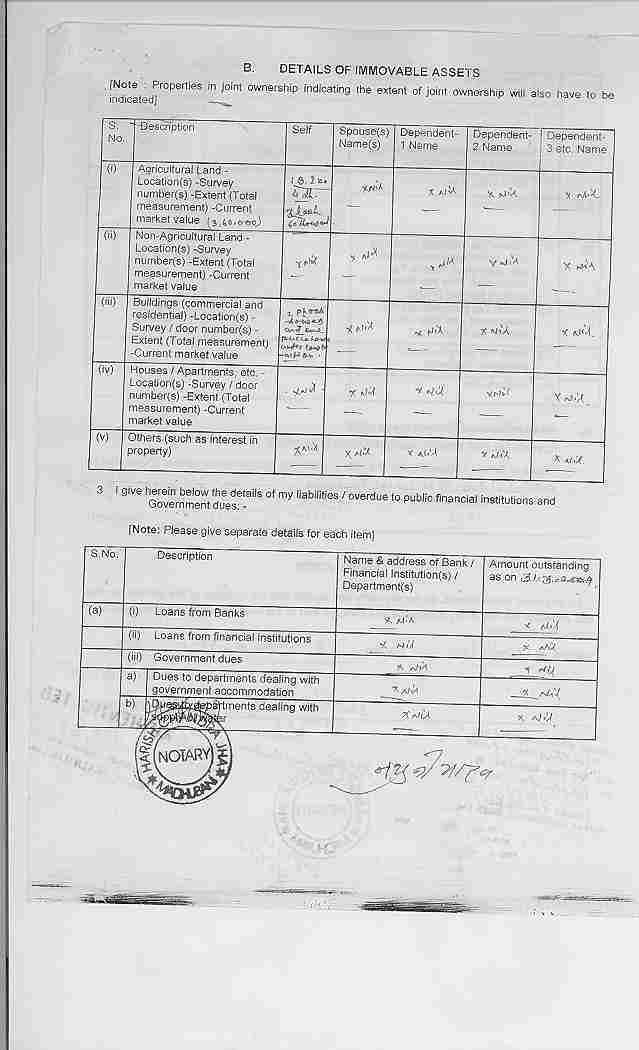 B. DETAILS OF IMMOVABLE ASSETS
[Note : Properties in joint ownership indicating the extent of joint ownership will also have to be
indicated]
S. No. Description Self Spouse(s) Name(s) Dependent-1 Name Dependent-2 Name Dependent-3 etc. Name
(i) Agricultural Land -
Location(s) -Survey
number(s) -Extent (Total
measurement) -Current
market value (3,60,000)
3 Lakh
60 thousand
x Nil x Nil x Nil x Nil
(ii) Non-Agricultural Land -
Location(s) -Survey
number(s) -Extent (Total
measurement) -Current
market value
x Nil x Nil x Nil x Nil x Nil
(iii) Buildings (commercial and
residential) -Location(s) -
Survey / door number(s) -
Extent (Total measurement)
-Current market value
x Nil x Nil x Nil x Nil
(iv) Houses / Apartments, etc. -
Location(s) -Survey / door
number(s) -Extent (Total
measurement) -Current
market value
x Nil x Nil x Nil x Nil x Nil
(v) Others (such as interest in
property)
x Nil x Nil x Nil x Nil x Nil
3 I give herein below the details of my liabilities / overdue to public financial institutions and
Government dues: -
[Note: Please give separate details for each item]
S.No. Description Name & address of Bank / Financial Institution(s) / Department(s) Amount outstanding as on 31.3.2009.
(a) (i) Loans from Banks x Nil x Nil
(ii) Loans from financial institutions x Nil x Nil
(iii) Government dues x Nil x Nil
a) Dues to departments dealing with
government accommodation x Nil x Nil
b) Dues to departments dealing with
supply of water x Nil x Nil
HARISH CHANDRA JHA
NOTARY
MADHUBANI